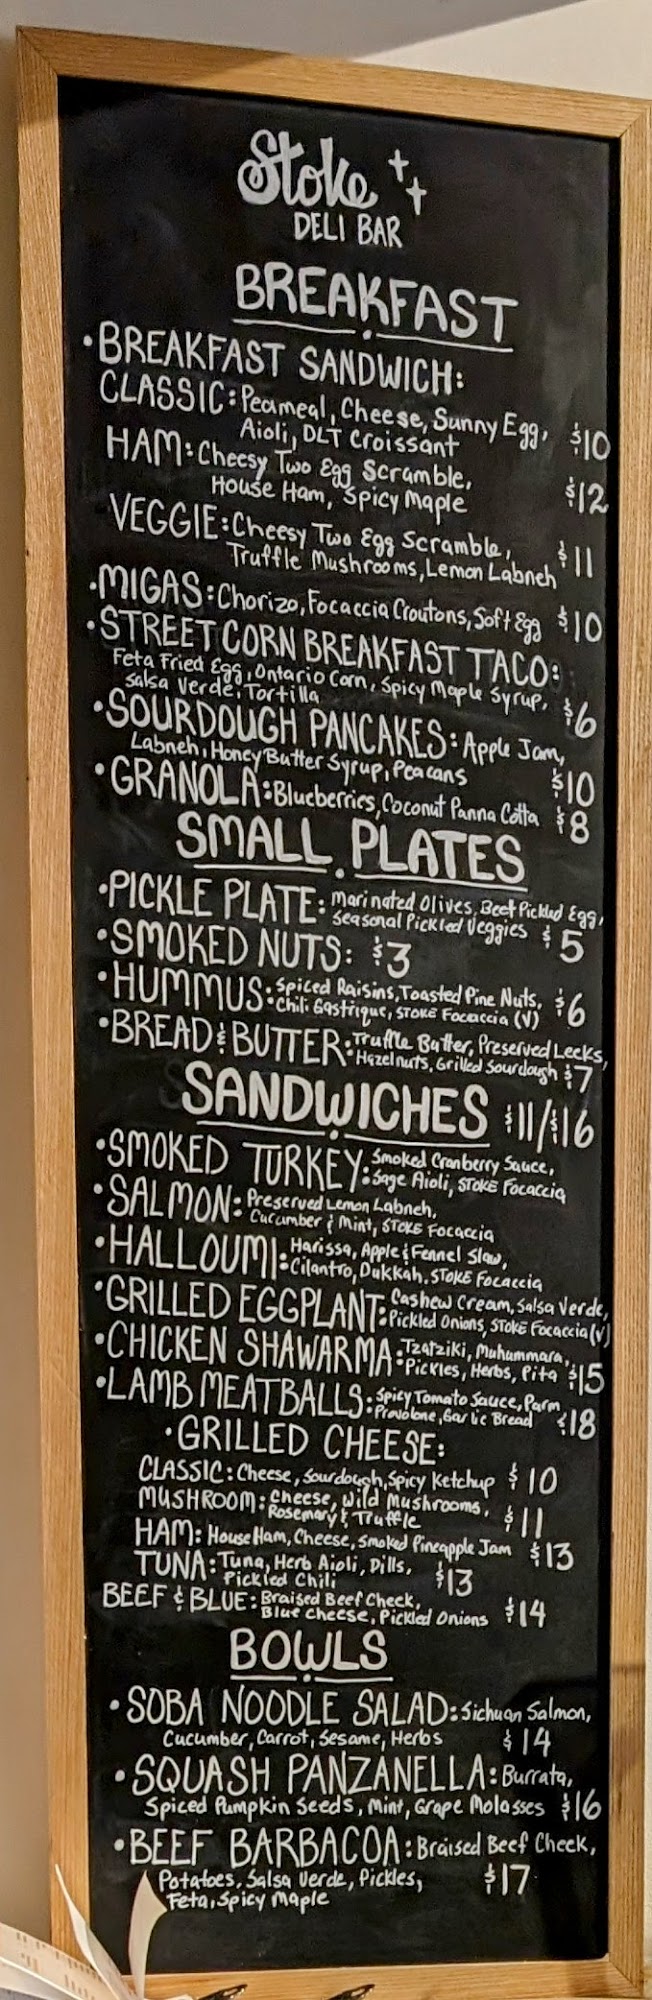 Stoke
DELI BAR
BREAKFAST
• BREAKFAST SANDWICH:
CLASSIC: Peameal, Cheese, Sunny Egg,
Aioli, DLT Croissant $10
HAM: Cheesy Two Egg Scramble,
House Ham, Spicy Maple $12
VEGGIE: Cheesy Two Egg Scramble,
Truffle Mushrooms, Lemon Labneh $11
• MIGAS: Chorizo, Focaccia Croutons, Soft Egg $10
• STREET CORN BREAKFAST TACO:
Feta Fried Egg, Ontario Corn, Spicy Maple Syrup,
Salsa Verde, Tortilla $6
• SOURDOUGH PANCAKES: Apple Jam,
Labneh, Honey Butter Syrup, Peacans $10
• GRANOLA: Blueberries, Coconut Panna Cotta $8
SMALL PLATES
• PICKLE PLATE: Marinated Olives, Beet Pickled Egg,
Seasonal Pickled Veggies $5
• SMOKED NUTS: $3
• HUMMUS: Spiced Raisins, Toasted Pine Nuts,
Chili Gastrique, STOKE Focaccia (V) $6
• BREAD & BUTTER: Truffle Butter, Preserved Leeks,
Hazelnuts, Grilled Sourdough $7
SANDWICHES $11/$16
• SMOKED TURKEY: Smoked Cranberry Sauce,
Sage Aioli, STOKE Focaccia
• SALMON: Preserved Lemon Labneh,
Cucumber & Mint, STOKE Focaccia
• HALLOUMI: Harissa, Apple & Fennel Slaw,
Cilantro, Dukkah, STOKE Focaccia
• GRILLED EGGPLANT: Cashew Cream, Salsa Verde,
Pickled Onions, STOKE Focaccia (V)
• CHICKEN SHAWARMA: Tzatziki, Muhummara,
Pickles, Herbs, Pita $15
• LAMB MEATBALLS: Spicy Tomato Sauce, Parm
Provolone, Garlic Bread $18
• GRILLED CHEESE:
CLASSIC: Cheese, Sourdough, Spicy Ketchup $10
MUSHROOM: Cheese, Wild Mushrooms,
Rosemary & Truffle $11
HAM: House Ham, Cheese, Smoked Pineapple Jam $13
TUNA: Tuna, Herb Aioli, Dills,
Pickled Chili $13
BEEF & BLUE: Braised Beef Cheek,
Blue Cheese, Pickled Onions $14
BOWLS
• SOBA NOODLE SALAD: Sichuan Salmon,
Cucumber, Carrot, Sesame, Herbs $14
• SQUASH PANZANELLA: Burrata,
Spiced Pumpkin Seeds, Mint, Grape Molasses $16
• BEEF BARBACOA: Braised Beef Cheek,
Potatoes, Salsa Verde, Pickles, $17
Feta, Spicy Maple